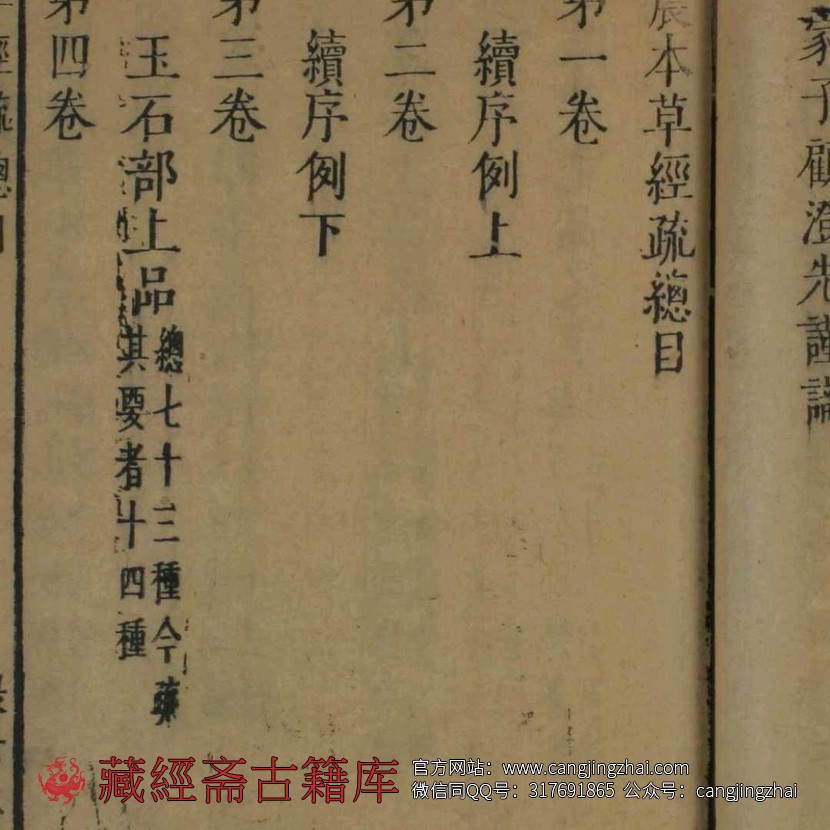 豪子顧澄先謹識
農本草經疏總目
第一卷
續序例上
第二卷
續序例下
第三卷
玉石部上品
總七十三種今疏
其要者十四種
第四卷
經疏總目
藏經斋古籍库
官方网站：www.cangjingzhai.com
微信同QQ号：317691865 公众号：cangjingzhai